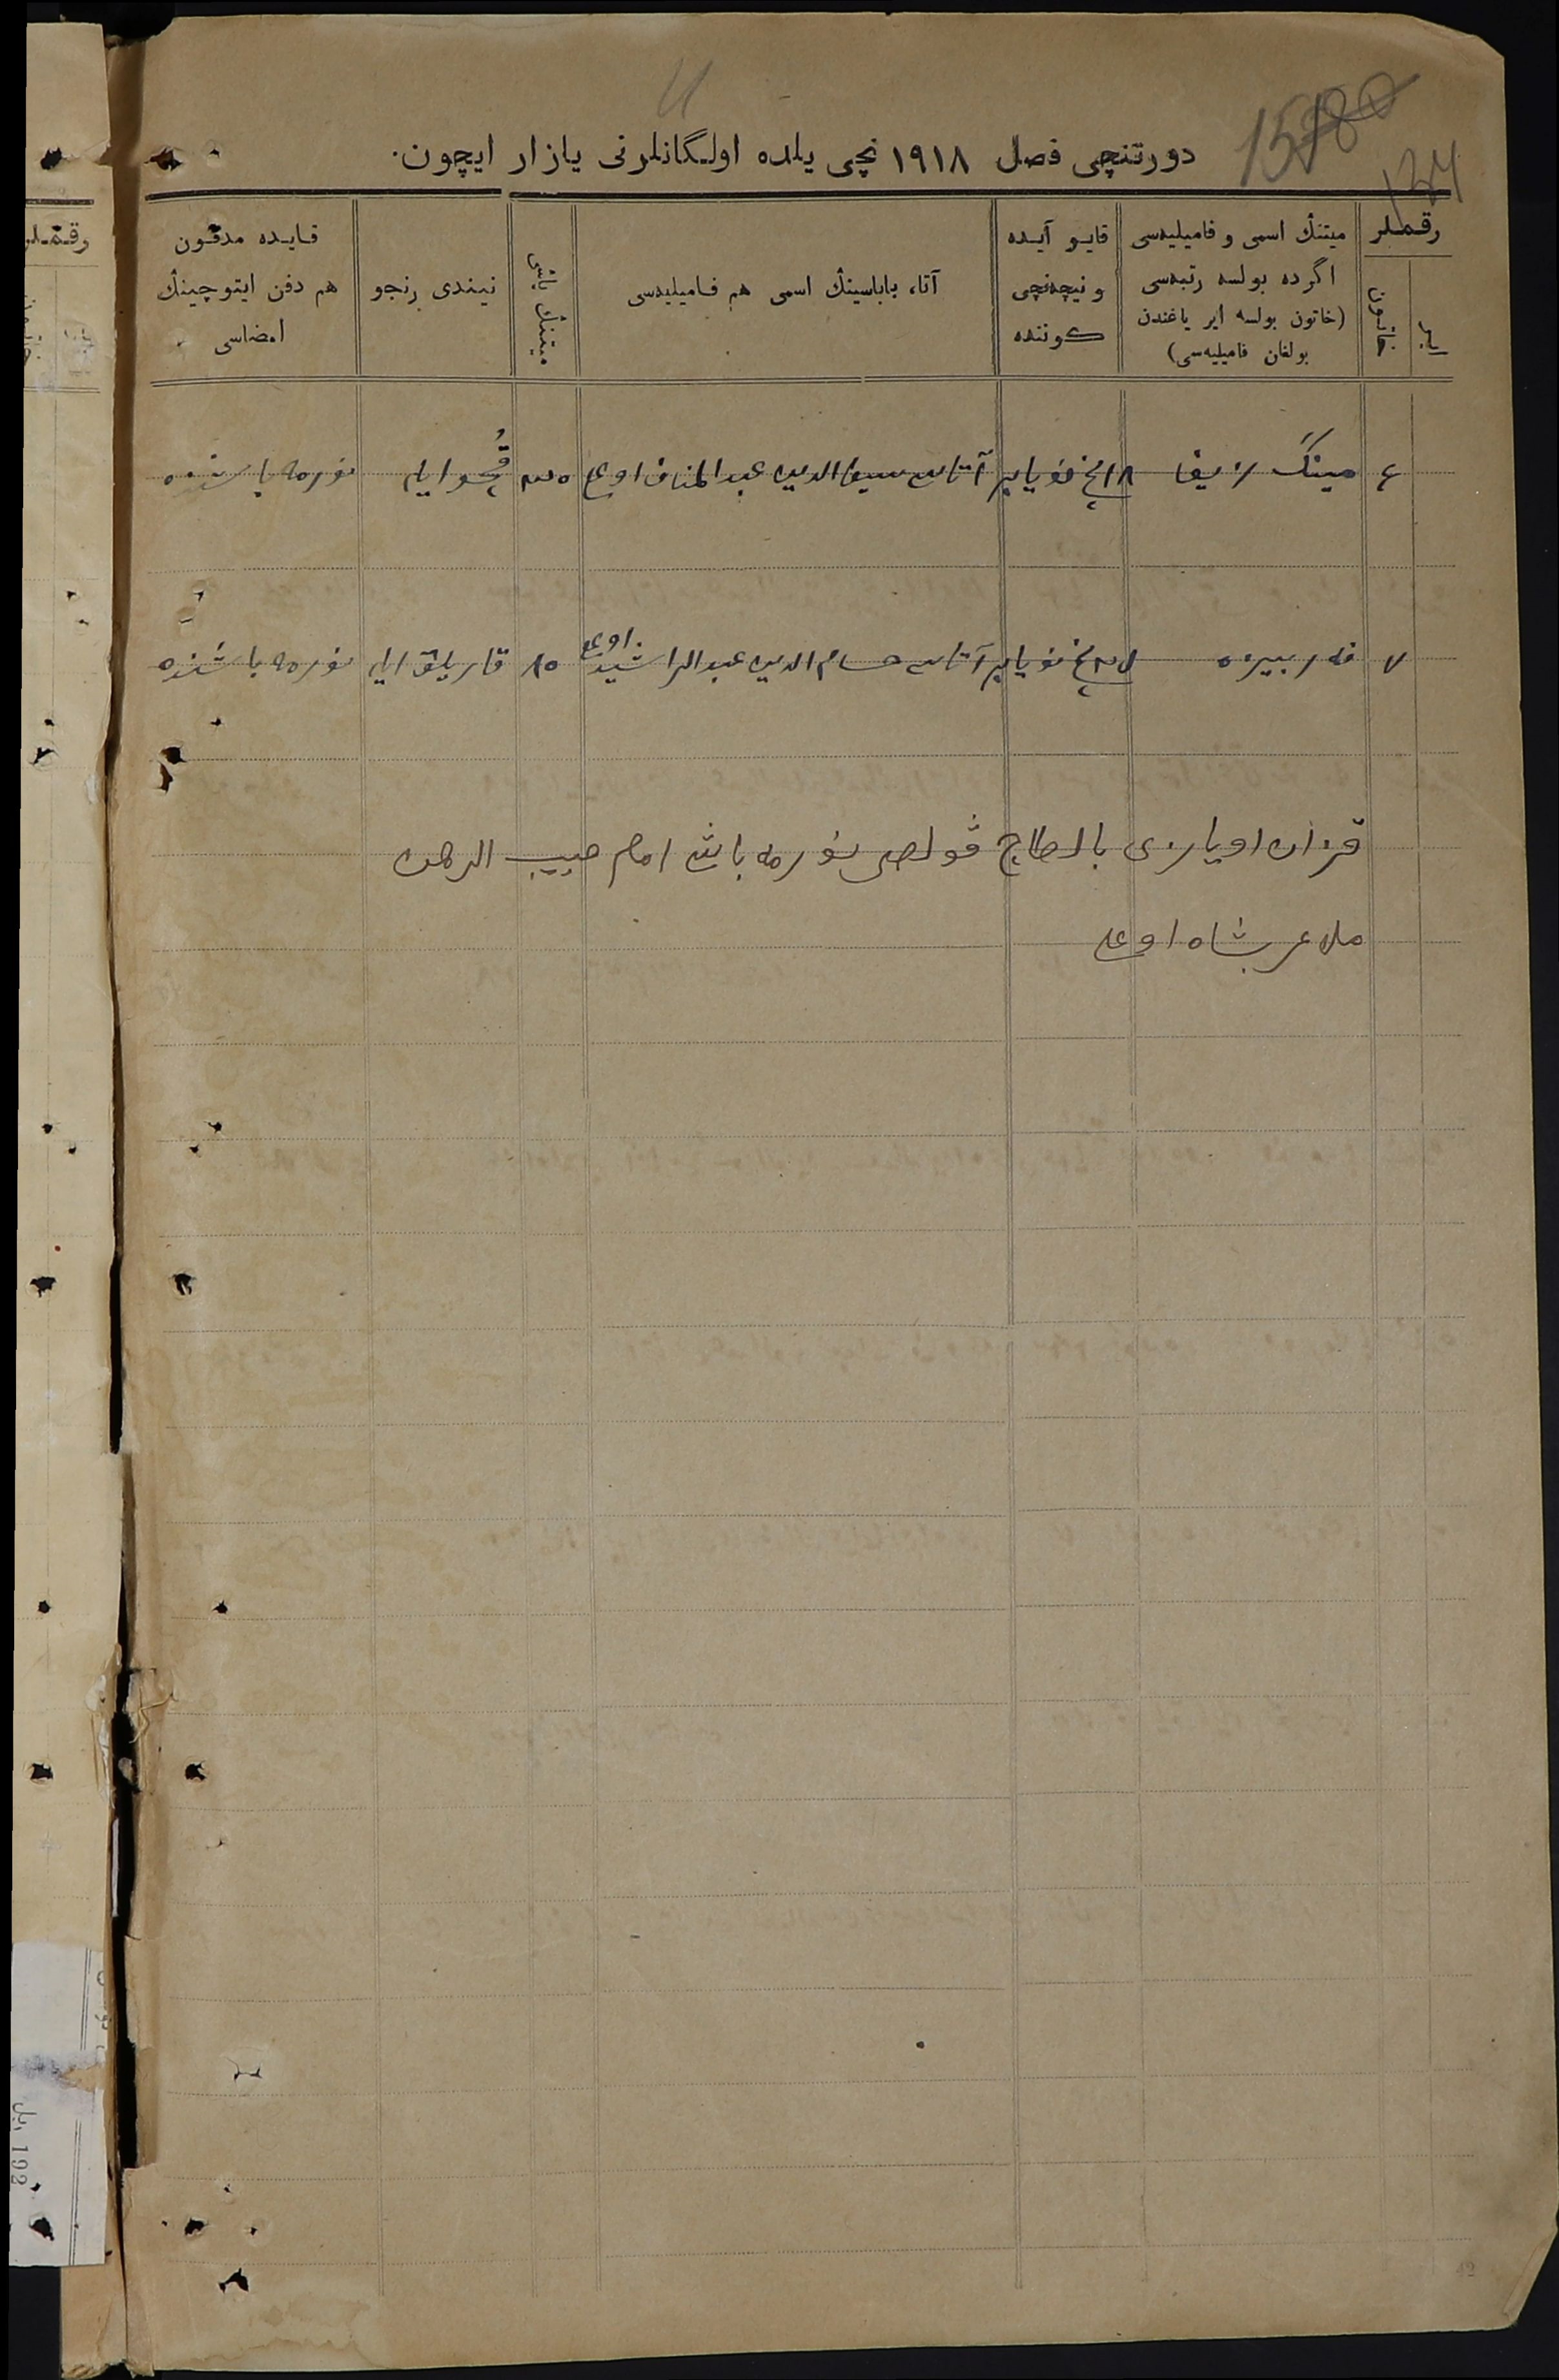 15180
134
دورتنچی فصل ١٩١٨ نچی یلده اولگانلرنی یازار ایچون.
رقملر
میتنڭ اسمی و فامیلیه‌سی
اگرده بولسه رتبه‌سی
(خاتون بولسه ایر یاغندن
بولغان فامیلیه‌سی)
قایو آیده
و نیچه‌نچی
کوننده
آتا، باباسینڭ اسمی هم فامیلیه‌سی
میتنڭ یاشی
نیندی رنجو
قایده مدفون
هم دفن ایتوچینڭ
امضاسی
٤ مینڭ زیفا ١٨ نچی نویابر آتاسی سیف الدین عبد المناف اوغلی ٣٥ ایله نورمه باشنده
٧ بیزه نچی نویابر آتاسی حسام الدین عبد الراشید اوغلی ٨٥ قارتلق ایله نورمه باشنده
قزان اویازی بالطاچ ڤولصی نورمه باش امام حبیب الرحمن
ملا عربشاه اوغلی